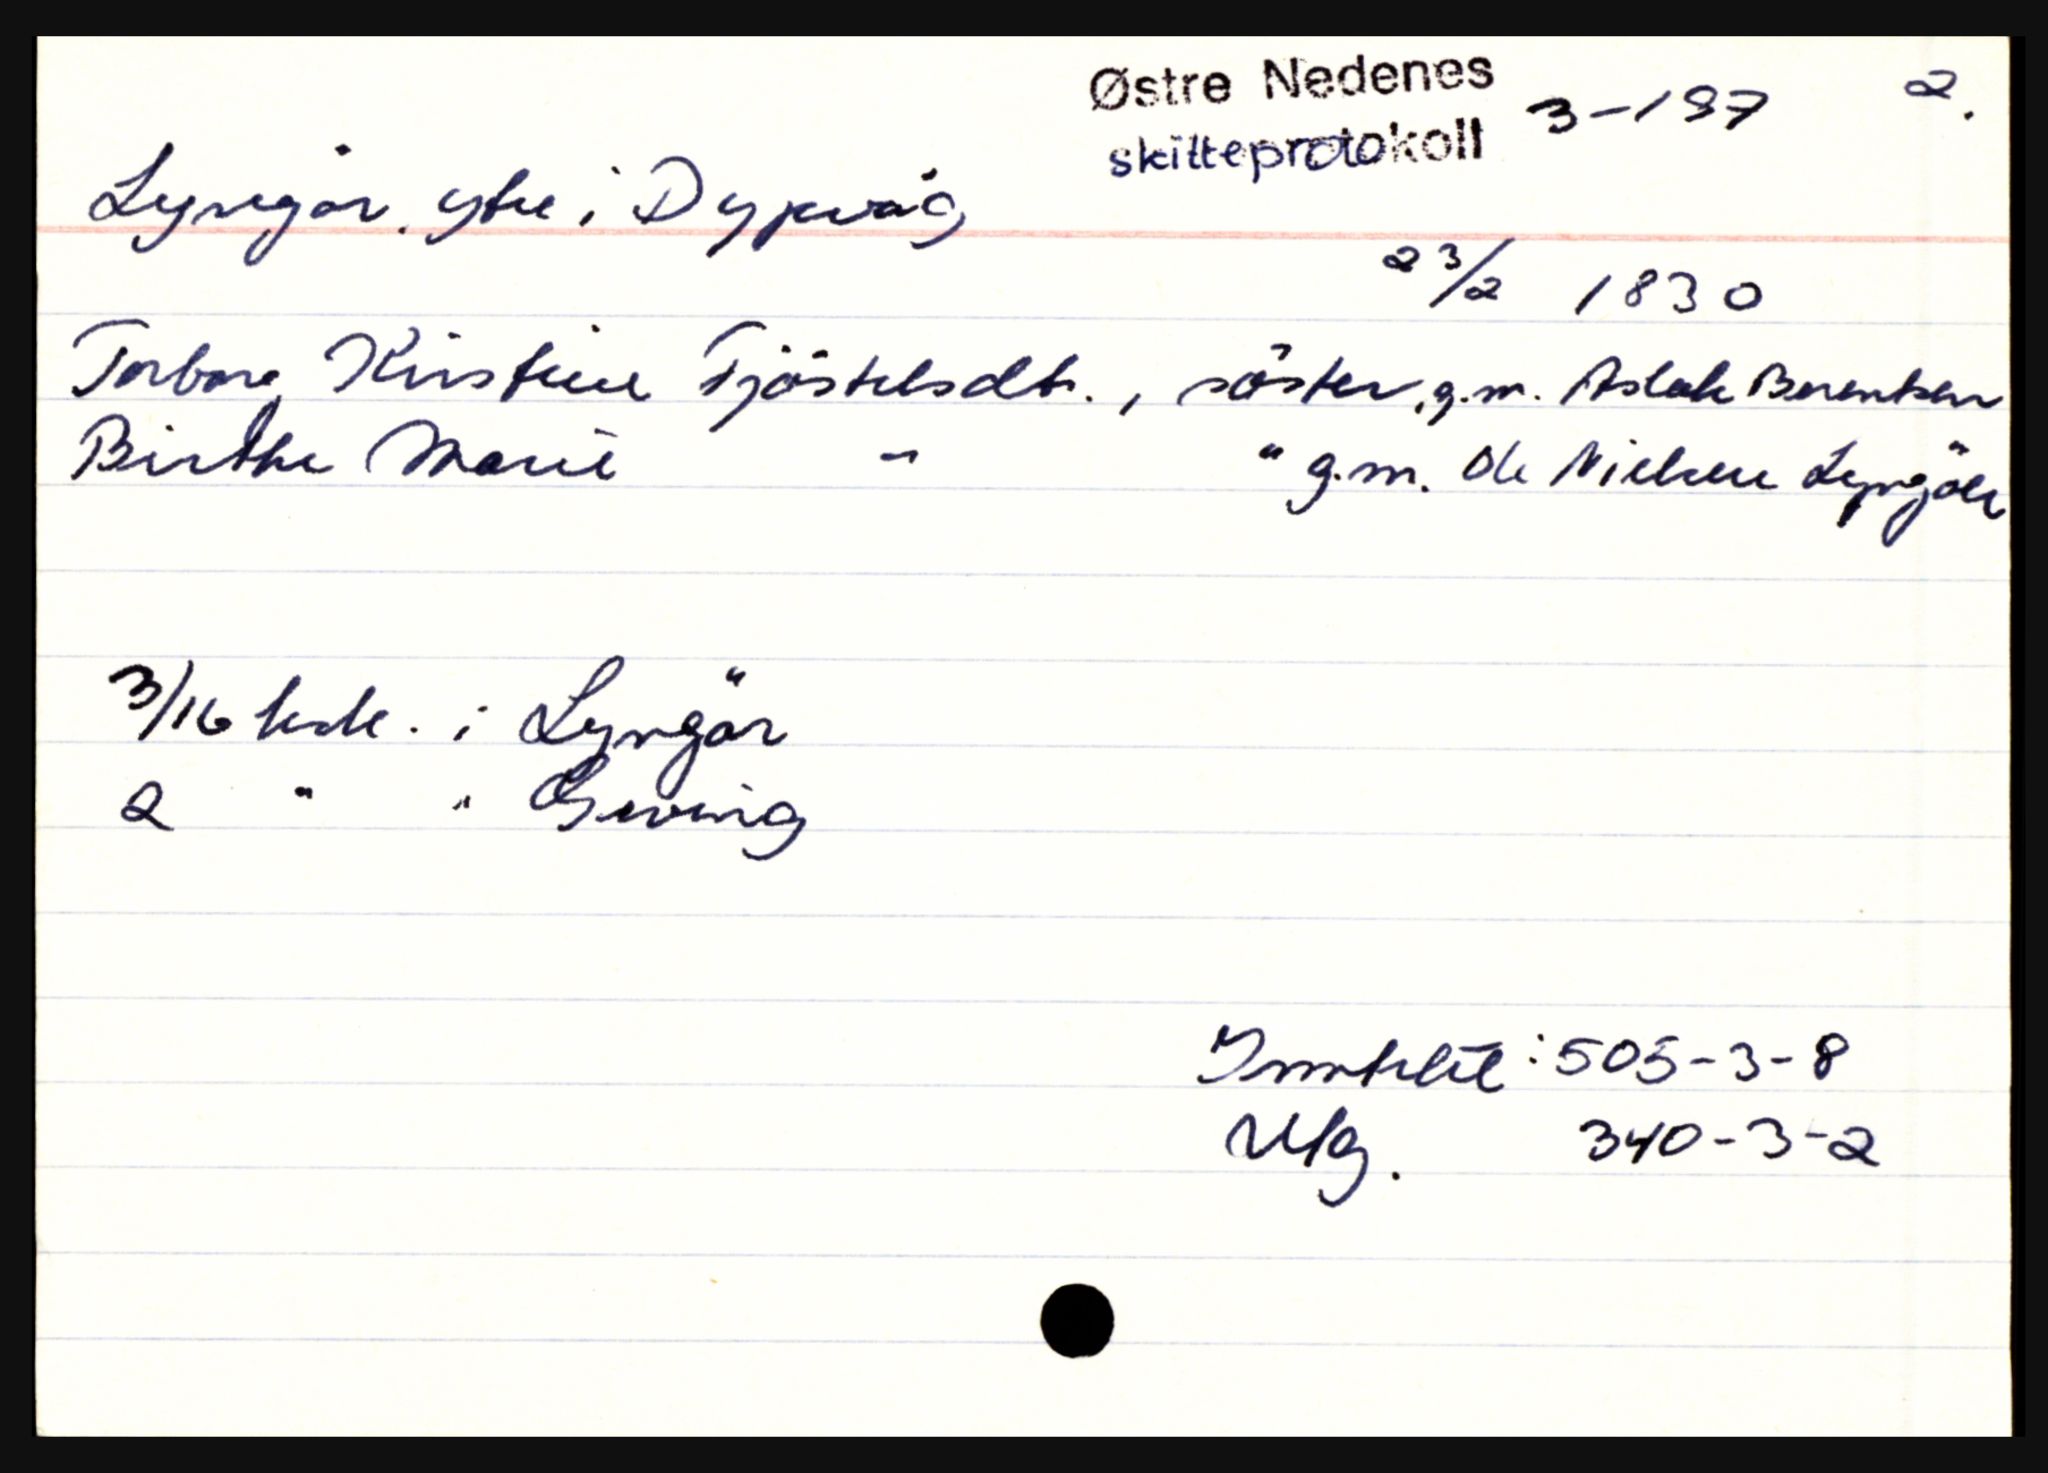 Østre Nedenes
skifteprotokoll 3-197 2.
Lyngör, ytre i Dypvåg
23/2 1830
Torborg Kirstine Tjöstelsdtr., söster, g.m. Aslak Berentsen
Birthe Marie " " g.m. Ole Nielsen Lyngör
3/16 hude. i Lyngör
2 " " Gjeving
Inntekt: 505-3-8
Utg. 340-3-2